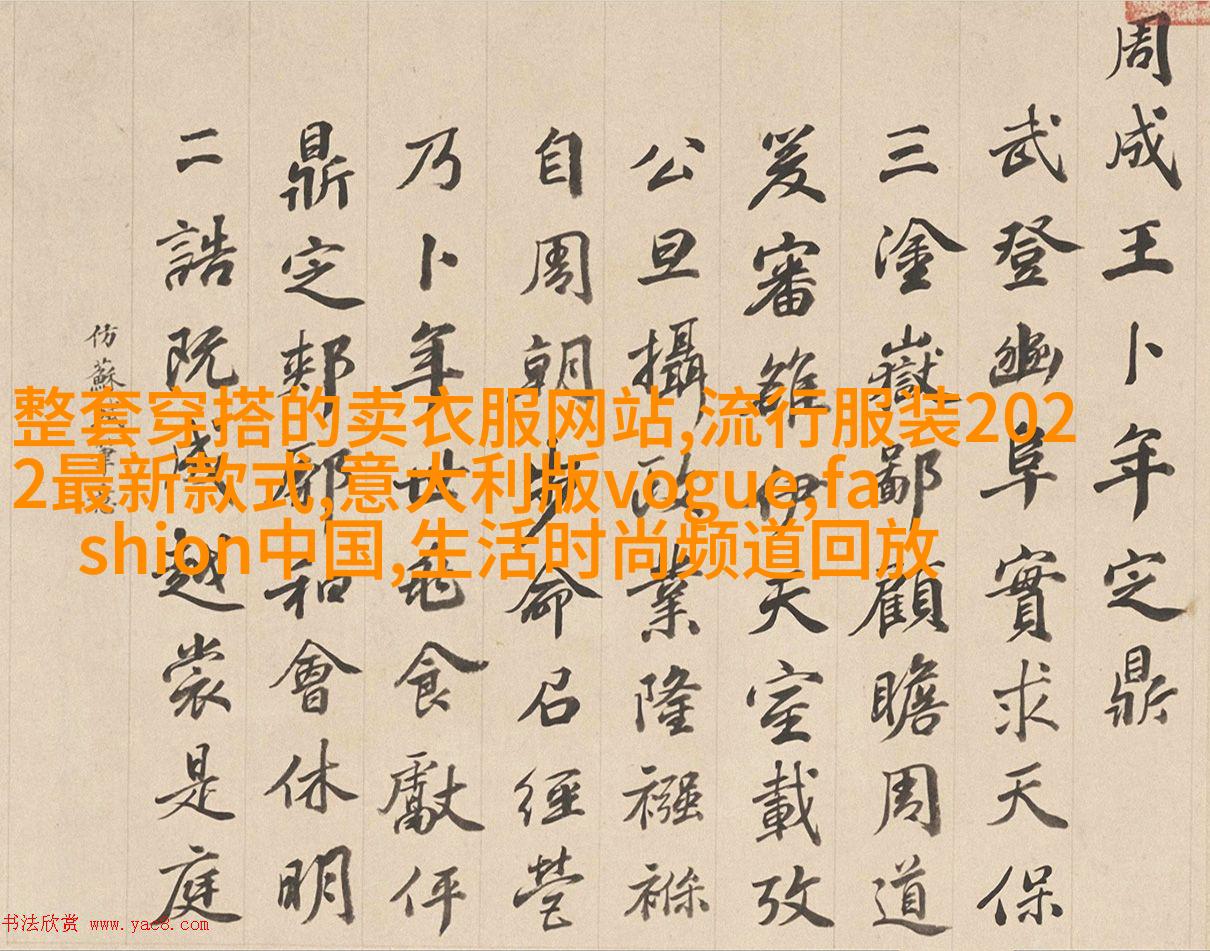 周成王卜年定鼎
武登幽阜實求天保
三塗嶽鄙顧瞻周道
爰審雒伊天室載攷
公旦攝政業隆襁褓
自周朝步命召經營
乃卜年世食獻伻
鼎定郟鄏和會休明
二誥既成越裳是庭
仿蘇
整套穿搭的卖衣服网站,流行服装202
2最新款式,意大利版vogue,fa
shion中国,生活时尚频道回放
书法欣赏 www.yac8.com